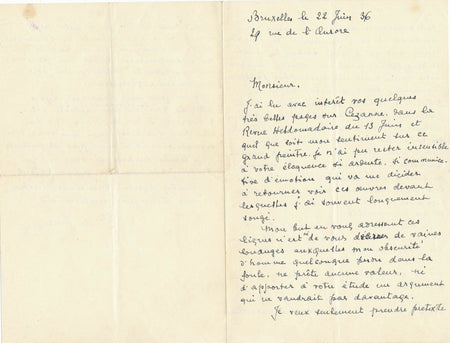 Bruxelles le 22 Juin 36
29 rue de l'Aurore
Monsieur.
J'ai lu avec interêt vos quelques
très belles pages sur Cezanne, dans la
Revue Hebdomadaire du 13 Juin et
quel que soit mon sentiment sur ce
grand peintre, je n'ai pu rester insensible
à votre éloquence si ardente, si communica-
tive d'emotion qui va me décider
à retourner voir ces œuvres devant
lesquelles j'ai souvent longuement
songé.
Mon but en vous adressant ces
lignes n'est de vous de vaines
louanges auxquelles mon obscurité
d'homme quelconque perdu dans la
foule, ne prête aucune valeur, ni
d'apporter à votre étude un argument
qui ne vaudrait pas davantage.
Je veux seulement prendre prétexte